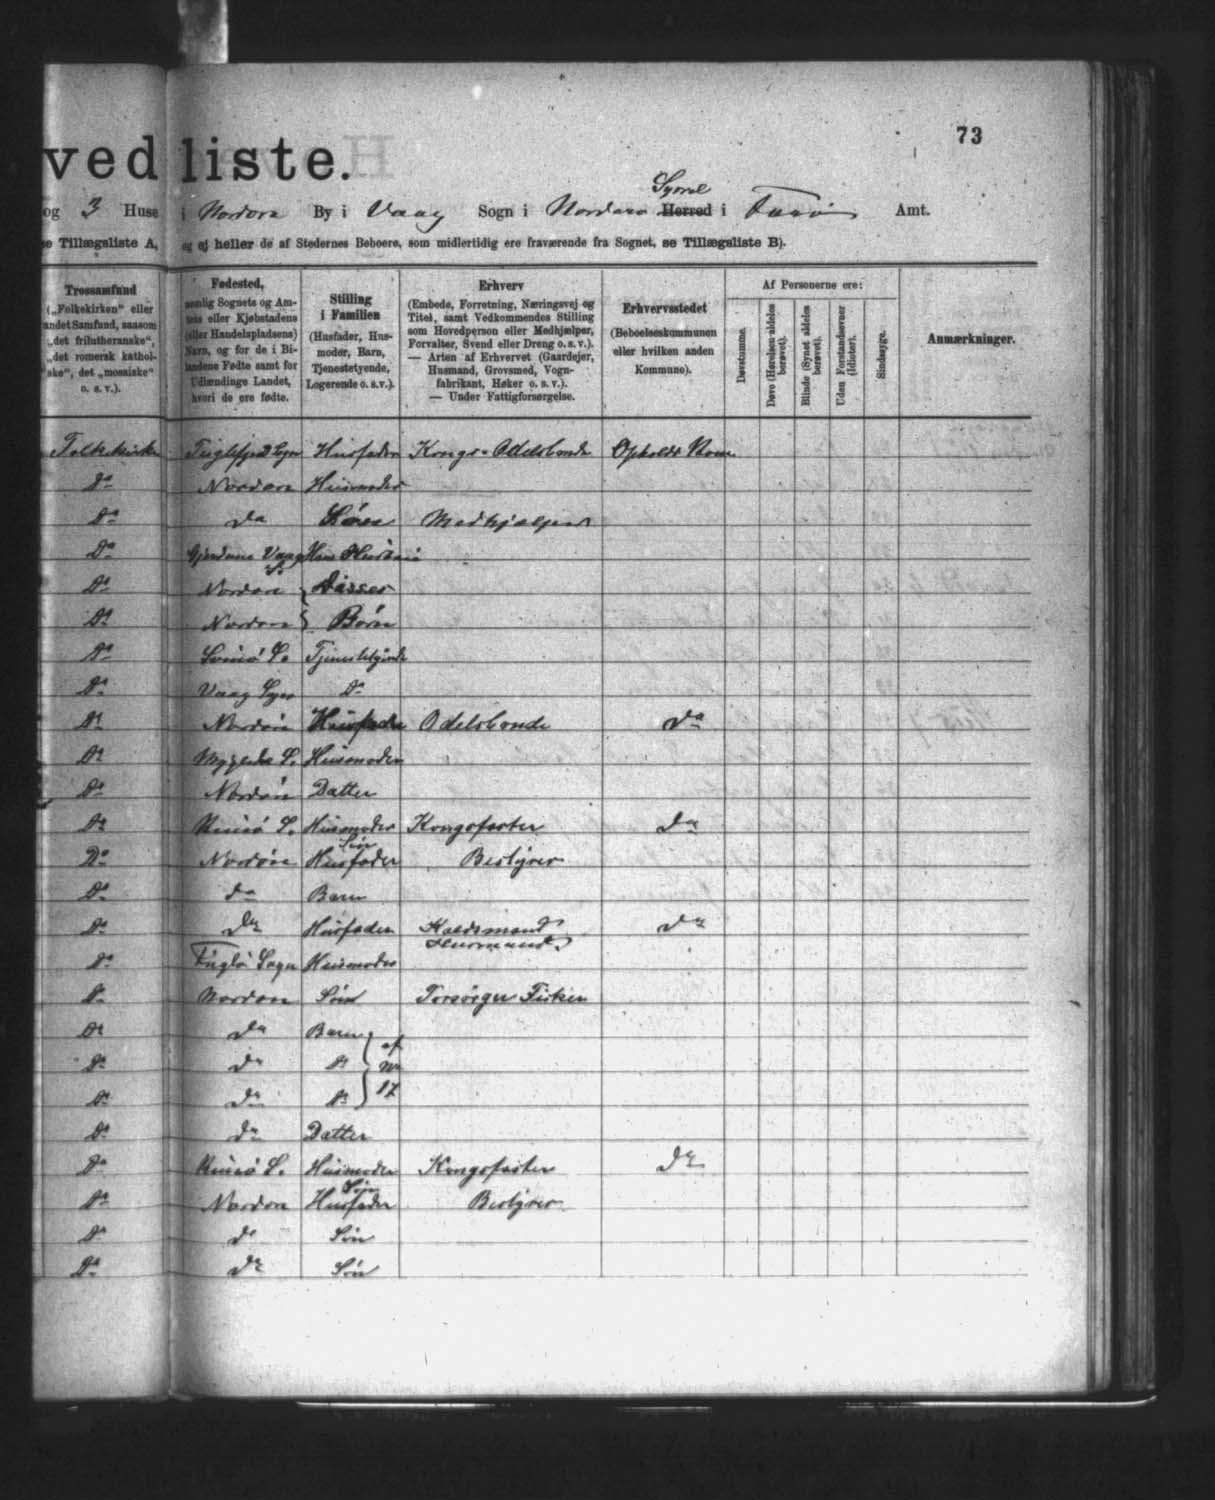 73
vedliste.
og 3 Huse i Nordøre By i Vaag Sogn i Nordøre Syssel Herred i Færø Amt.
se Tillægsliste A, og ej heller de af Stedernes Beboere, som midlertidig ere fraværende fra Sognet, se Tillægsliste B).
Trossamfund
(„Folkekirken“ eller
andet Samfund, saasom
„det frilutheranske“,
„det romersk kathol-
ske“, det „mosaiske“
o. s. v.).
Fødested,
nemlig Sognets og Am-
tets eller Kjøbstadens
(eller Handelspladsens)
Navn, og for de i Bi-
landene Fødte samt for
Udlændinge Landet,
hvori de ere fødte.
Stilling
i Familien
(Husfader, Hus-
moder, Barn,
Tjenestetyende,
Logerende o. s. v.).
Erhverv
(Embede, Forretning, Næringsvej og
Titel, samt Vedkommendes Stilling
som Hovedperson eller Medhjælper,
Forvalter, Svend eller Dreng o. s. v.).
— Arten af Erhvervet (Gaardejer,
Husmand, Grovsmed, Vogn-
fabrikant, Høker o. s. v.).
— Under Fattigforsørgelse.
Erhvervsstedet
(Beboelseskommunen
eller hvilken anden
Kommune).
Af Personerne ere:
Døvstumme.
Døve (Hørelsen aldeles
berøvet).
Blinde (Synet aldeles
berøvet).
Uden Forstandsevner
(Idioter).
Sindssyge.
Anmærkninger.
Folkekirken Husfader Konge- Odelsbonde Opholds Kom
Do Nordøre Husmoder
Do Do Medhjælper
Do Vaag S. Hans Hustru
Do Nordøre Disses
Do Nordøre Børn
Do S. Tjenestetyende
Do Vaag Sogn Do
Do Nordøre Husfader Odelsbonde Do
Do S. Husmoder
Do Nordøre Datter
Do S. Husmoder Kongsfæster Do
Do Nordøre Søn Husfader Bestyrer
Do Do Barn
Do Do Husfader Husmand Do
Do Fuglø Sogn Husmoder
Do Nordøre Søn Forsørger Fisker
Do Do Barn
Do Do Do af
Do Do Do 17
Do Do Datter
Do S. Husmoder Kongsfæster Do
Do Nordøre Søn Husfader Bestyrer
Do Do Søn
Do Do Søn